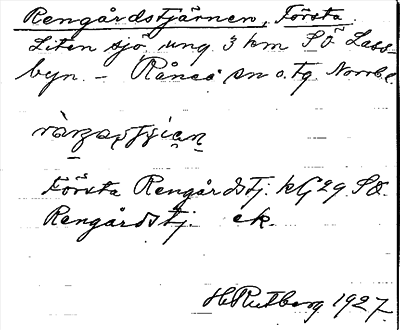 Rengårdstjärnen, Första.
Liten sjö ung. 3 km SÖ Lass-
byn. – Råneå sn o. tg. Norrb. l.
Första Rengårdstj. kG 29 SO.
Rengårdstj. ek.
H. Rutberg 1927.